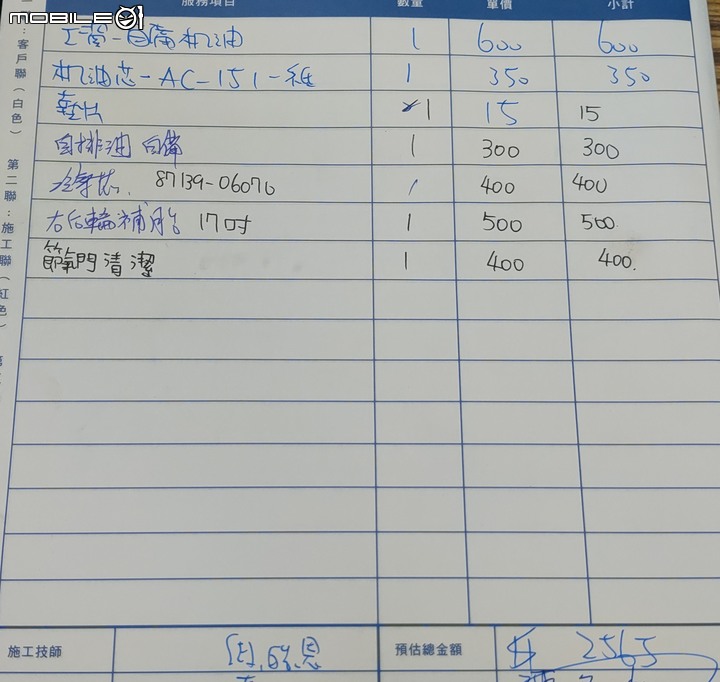 MOBILE01
服務項目 數量 單價 小計
工資-自備机油 1 600 600
机油芯-AC-151- 1 350 350
墊片 1 15 15
自排油 自備 1 300 300
冷氣芯. 87139-06070 1 400 400
右后輪補胎 17吋 1 500 500
節氣門清潔 1 400 400.
:客戶聯(白色) 第二聯:施工聯(紅色)
施工技師 預估總金額 $ 2565